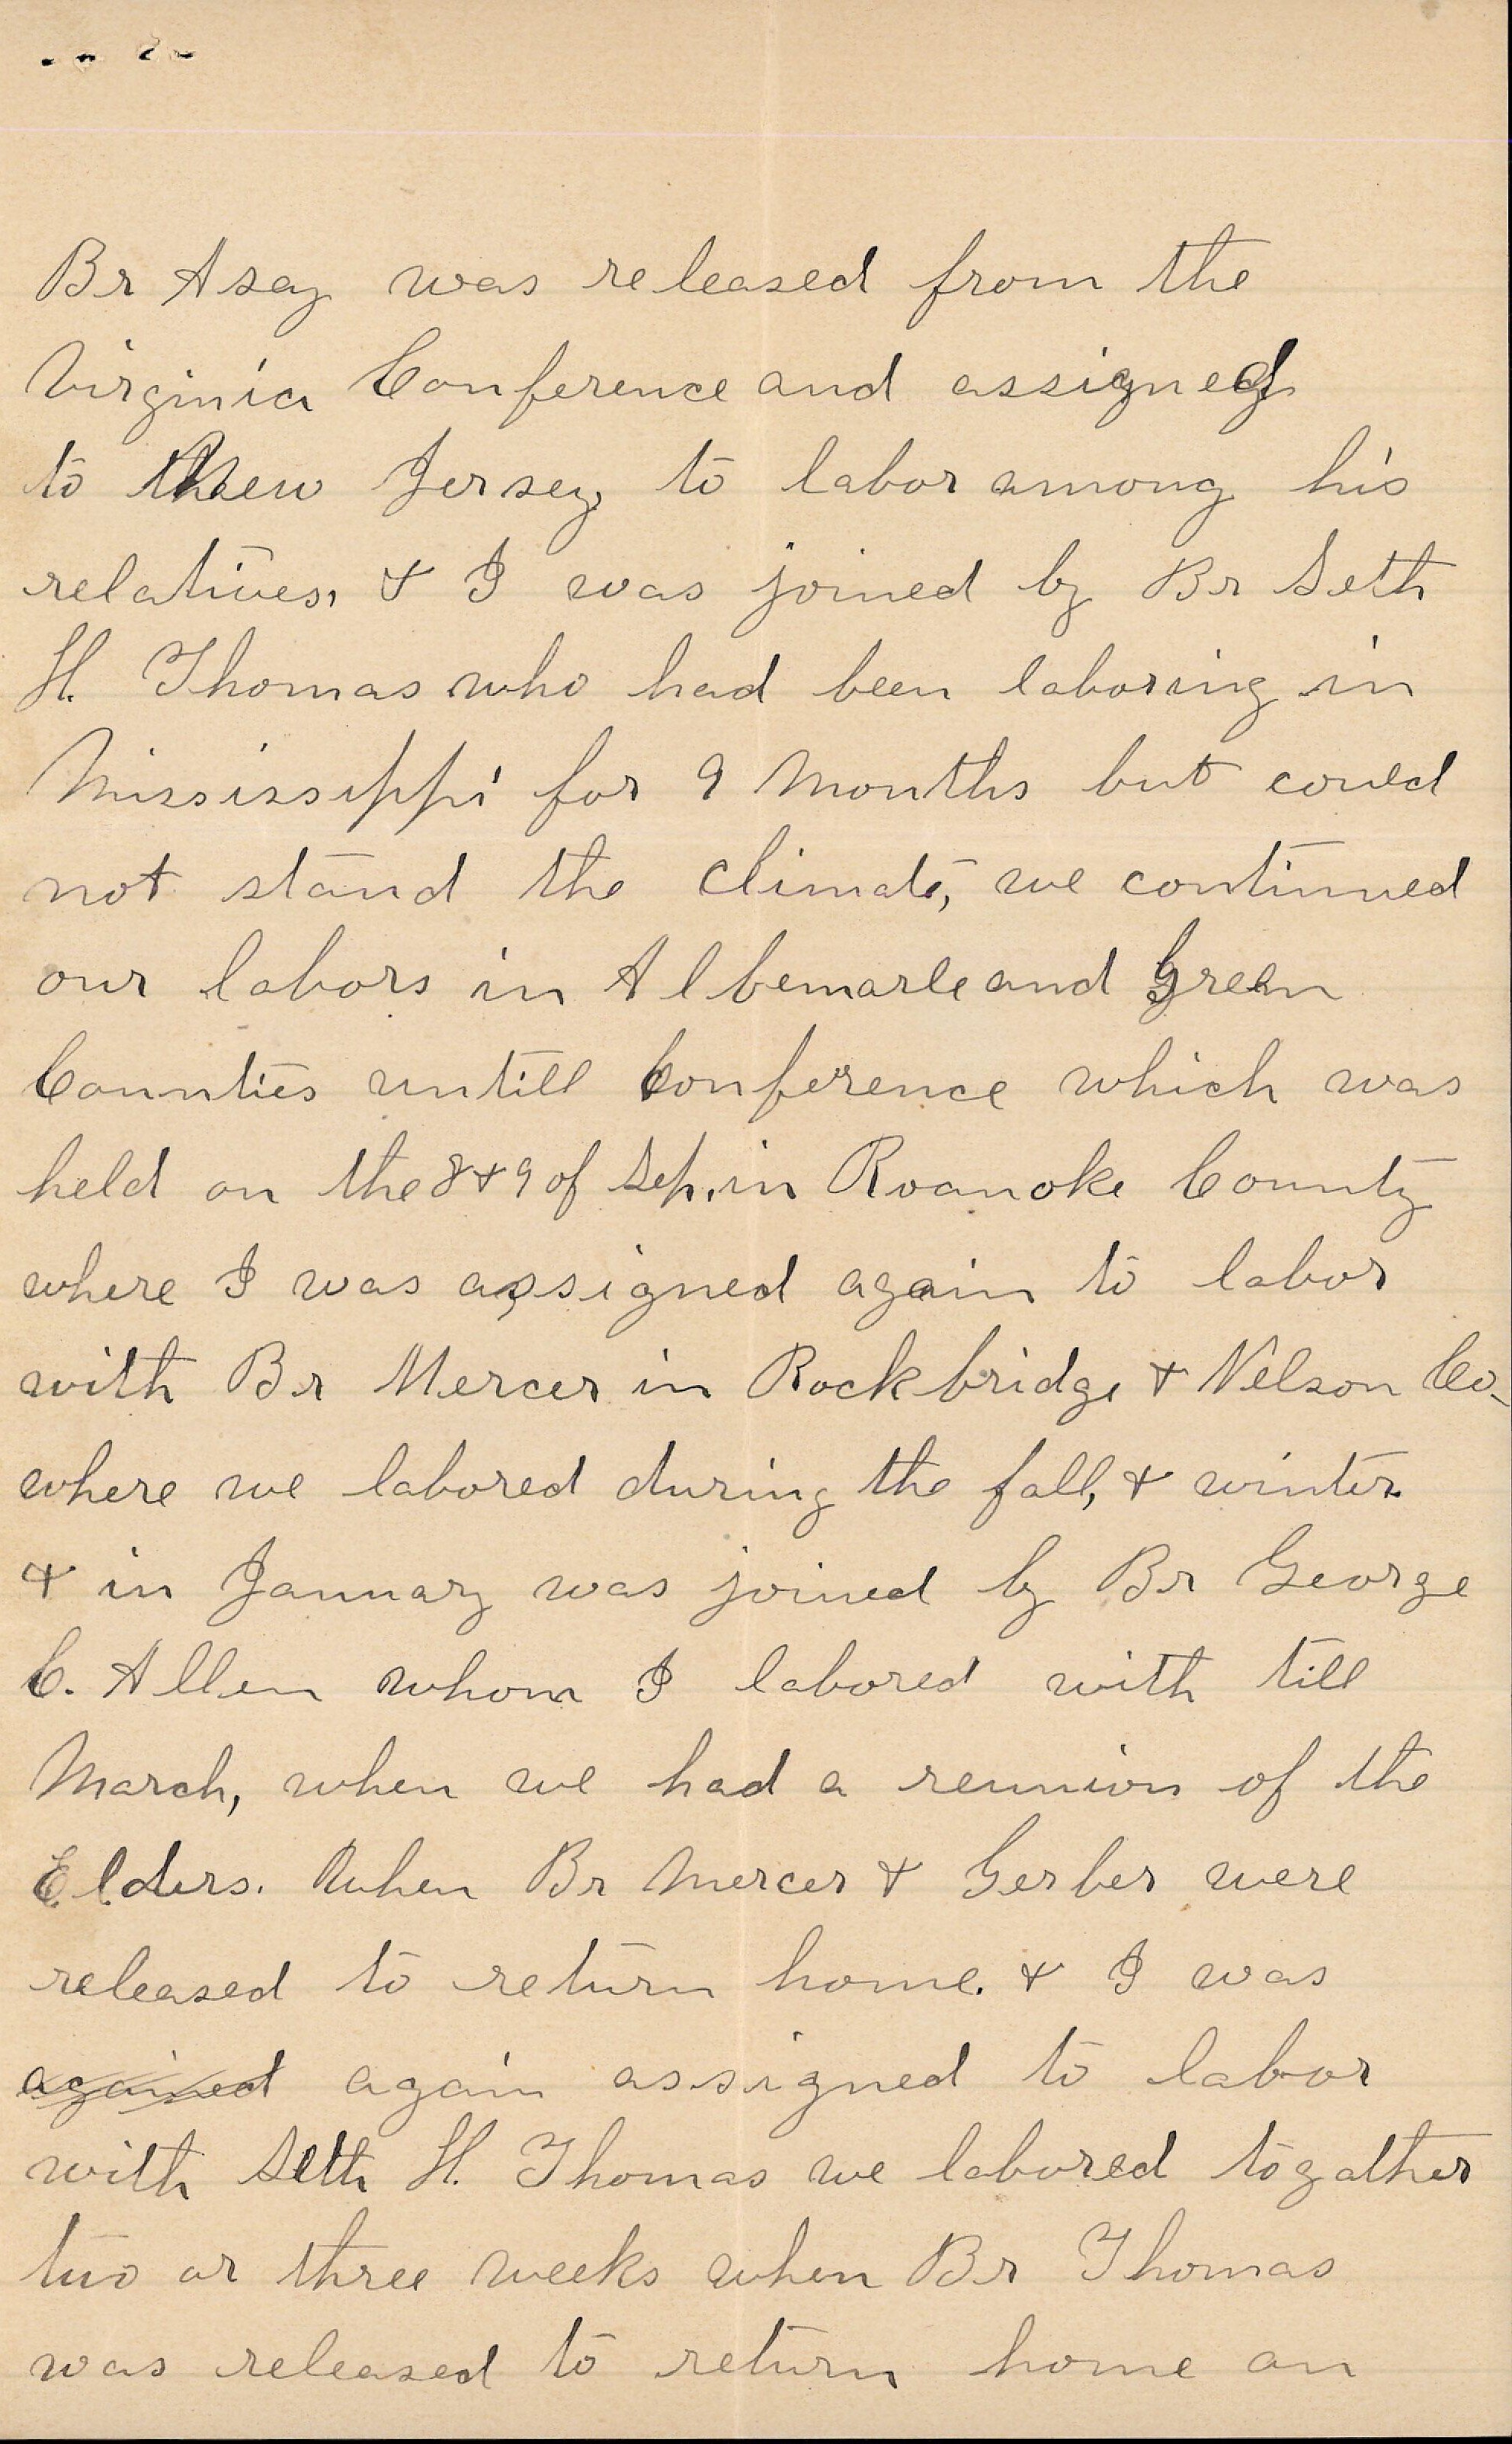 Br Asay was released from the
Virginia Conference and assigned
to New Jersey to labor among his
relatives, & I was joined by Br Seth
H. Thomas who had been laboring in
Mississippi for 9 Months but could
not stand the climate, we continued
our labors in Albemarle and Green
Counties untill Conference which was
held on the 8 & 9 of Sep. in Roanoke County
where I was assigned again to labor
with Br Mercer in Rockbridge & Nelson Co.
where we labored during the fall, & winter
& in January was joined by Br George
C. Allen whom I labored with till
March, when we had a reunion of the
Elders. When Br Mercer & Gerber were
released to return home. & I was
agained again assigned to labor
with Seth H. Thomas we labored togather
two or three weeks when Br Thomas
was released to return home an